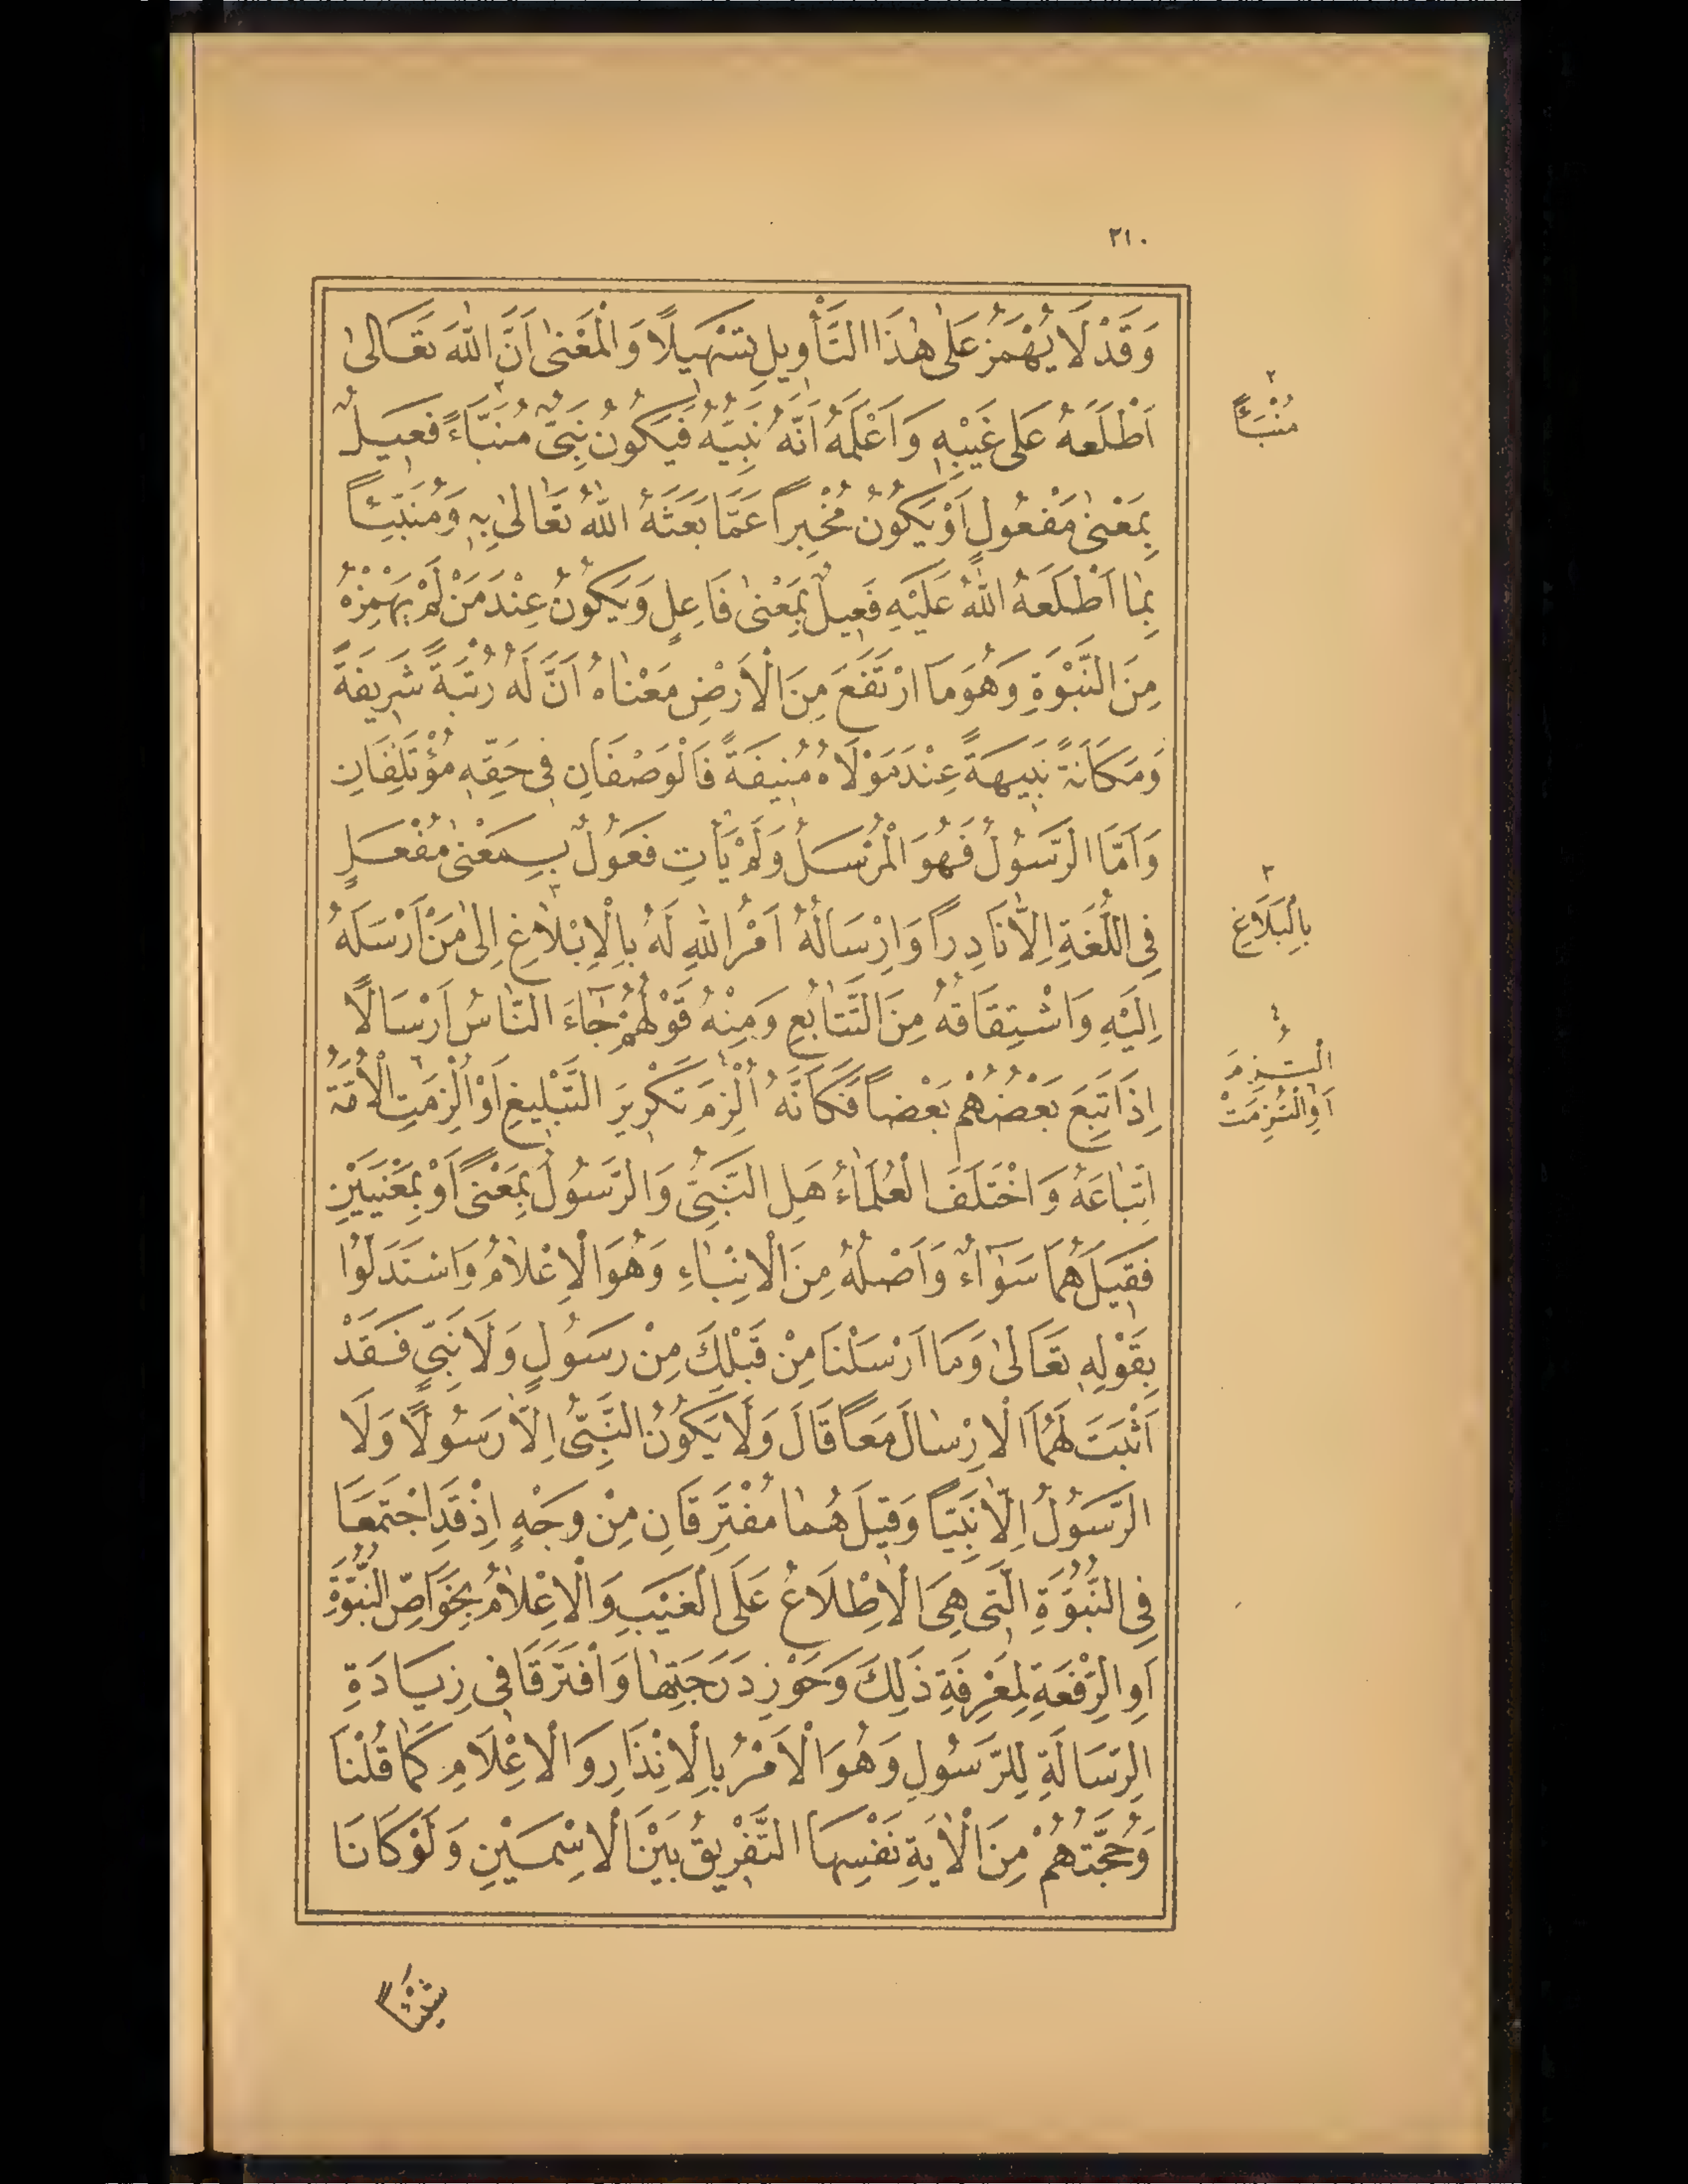 ٢١٠
وَقَدْ لَا يُهْمَزُ عَلٰى هٰذَا التَّأْوِيلِ تَسْهِيلًا وَالْمَعْنٰى اَنَّ اللّٰهَ تَعَالٰى
اَطْلَعَهُ عَلٰى غَيْبِهِ وَاَعْلَمَهُ اَنَّهُ نَبِيُّهُ فَيَكُونُ نَبِىٌّ مُنَبَّاءً فَعِيلٌ
٢
مُنْبَئًا
بِمَعْنٰى مَفْعُولٍ اَوْ يَكُونُ مُخْبِراً عَمَّا بَعَثَهُ اللّٰهُ تَعَالٰى بِهِ وَمُنَبِّئًا
بِمَا اَطْلَعَهُ اللّٰهُ عَلَيْهِ فَعِيلٌ بِمَعْنٰى فَاعِلٍ وَيَكُونُ عِنْدَ مَنْ لَمْ يَهْمِزْهُ
مِنَ النَّبْوَةِ وَهُوَ مَا ارْتَفَعَ مِنَ الْاَرْضِ مَعْنَاهُ اَنَّ لَهُ رُتْبَةً شَرِيفَةً
وَمَكَانَةً نَبِيهَةً عِنْدَ مَوْلَاهُ مُنِيفَةً فَالْوَصْفَانِ فِى حَقِّهِ مُؤْتَلِفَانِ
وَاَمَّا الرَّسُولُ فَهُوَ الْمُرْسَلُ وَلَمْ يَأْتِ فَعُولٌ بِمَعْنٰى مُفْعَلٍ
فِى اللُّغَةِ اِلَّا نَادِراً وَاِرْسَالُهُ اَمْرُ اللّٰهِ لَهُ بِالْاِبْلَاغِ اِلٰى مَنْ اَرْسَلَهُ
٣
بِالْبَلَاغِ
اِلَيْهِ وَاشْتِقَاقُهُ مِنَ التَّتَابُعِ وَمِنْهُ قَوْلُهُمْ جَاءَ النَّاسُ اَرْسَالًا
اِذَا تَبِعَ بَعْضُهُمْ بَعْضاً فَكَاَنَّهُ اُلْزِمَ تَكْرِيرَ التَّبْلِيغِ اَوْ اُلْزِمَتِ الْاُمَّةُ
٤
الْتُزِمَ
اَوِ الْتُزِمَتْ
اتِّبَاعَهُ وَاخْتَلَفَ الْعُلَمَاءُ هَلِ النَّبِىُّ وَالرَّسُولُ بِمَعْنًى اَوْ بِمَعْنَيَيْنِ
فَقِيلَ هُمَا سَوَاءٌ وَاَصْلُهُ مِنَ الْاِنْبَاءِ وَهُوَ الْاِعْلَامُ وَاسْتَدَلُّوا
بِقَوْلِهِ تَعَالٰى وَمَا اَرْسَلْنَا مِنْ قَبْلِكَ مِنْ رَسُولٍ وَلَا نَبِىٍّ فَقَدْ
اَثْبَتَ لَهُمَا الْاِرْسَالَ مَعاً قَالَ وَلَا يَكُونُ النَّبِىُّ اِلَّا رَسُولًا وَلَا
الرَّسُولُ اِلَّا نَبِيًّا وَقِيلَ هُمَا مُفْتَرِقَانِ مِنْ وَجْهٍ اِذْ قَدِ اجْتَمَعَا
فِى النُّبُوَّةِ الَّتِى هِىَ الْاِطْلَاعُ عَلَى الْغَيْبِ وَالْاِعْلَامُ بِخَوَاصِّ النُّبُوَّةِ
اَوِ الرِّفْعَةِ لِمَعْرِفَةِ ذٰلِكَ وَحَوْزِ دَرَجَتِهَا وَافْتَرَقَا فِى زِيَادَةِ
الرِّسَالَةِ لِلرَّسُولِ وَهُوَ الْاَمْرُ بِالْاِنْذَارِ وَالْاِعْلَامِ كَمَا قُلْنَا
وَحُجَّتُهُمْ مِنَ الْاٰيَةِ نَفْسِهَا التَّفْرِيقُ بَيْنَ الْاِسْمَيْنِ وَلَوْ كَانَا
شَيْئًا